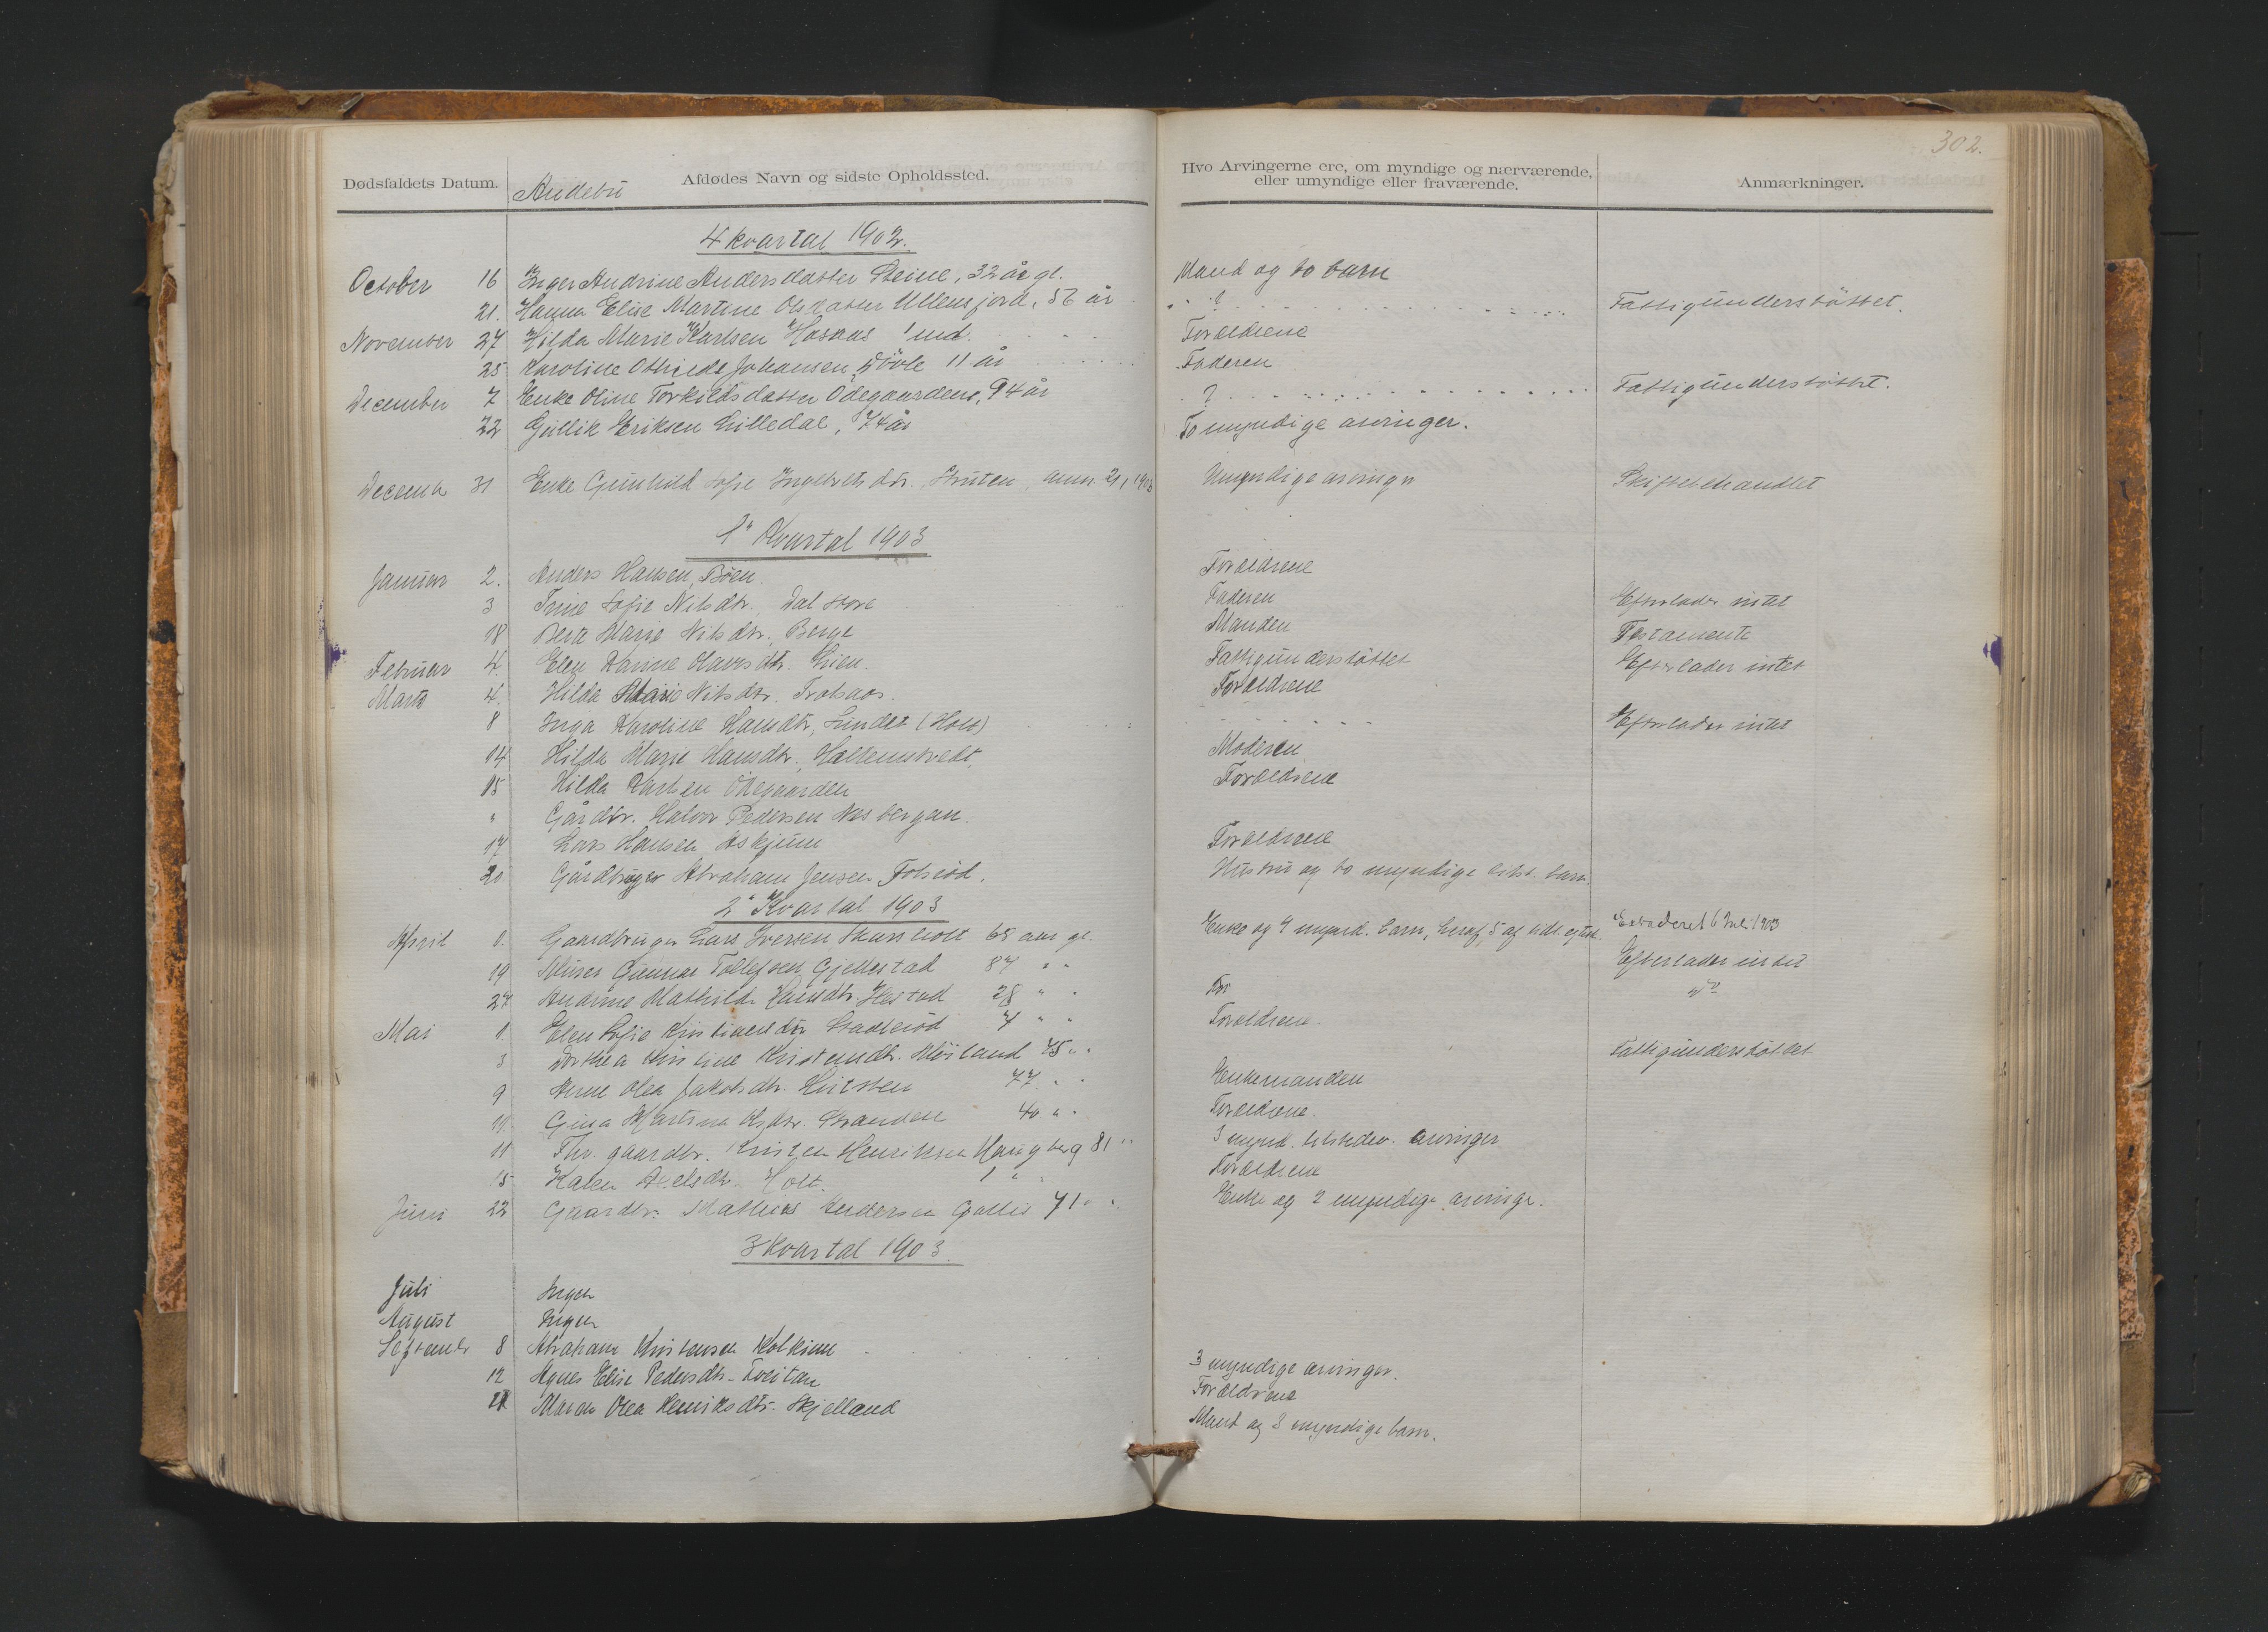 302.
Dødsfaldets Datum. Andebu Afdødes Navn og sidste Opholdssted. Hvo Arvingerne ere, om myndige og nærværende, eller umyndige eller fraværende. Anmærkninger.
4 kvartal 1902.
October 16 Inger Andrine Andersdatter Steine, 32 år gl. Mand og to barn
21. Hanna Elise Martine Olsdatter Ullensjord, 56 år ? Fattigunderstöttet.
November 27 Hilda Marie Karlsen Haskas 1 md. Forældrene
25 Karoline Othilede Johansen, 11 år Faderen
December 7 Enke Oline Torkildsdatter Ödegaardene, 94 år ? Fattigunderstöttet.
22 Gullik Eriksen Lilledal, 74 år To myndige arvinger.
Decemb 31 Enke Gunhild Sofie Ingebretsdtr. Struten, anm 2/1 1903 Umyndige arvinger Skiftebehandlet
1" Kvartal 1903
Januar 2. Anders Hansen, Böen Forældrene
3 Trine Sofie Nilsdtr. Dal store Faderen Efterlader intet
18 Berte Marie Nilsdtr. Berge Manden Testamente
Februar 4. Elen Karine Olavsdtr. Lien Fattigunderstöttet Efterlader intet
Marts 4. Hilda Marie Nilsdtr. Trolsaas Forældrene
8 Inga Karoline Hansdtr, Lundet (Holt) Efterlader intet
14 Hilda Marie Hansdtr. Hallenstvedt Moderen
15 Hilda Karlsen Ödegaarden Forældrene
" Gårdbr. Halvor Pedersen Nes bergan.
17 Lars Hansen Askjum Forældrene
20 Gårdbruger Abraham Jensen Folsröd. Hustru og to myndige barn
2" Kvartal 1903
April 1. Gaardbruger Lars Iversen Skarsholt 68 aar gl. Enke og 9 mynd. barn, heraf 5 af Extraderet 6 Juli 1903
19 Gunnar Tollefsen Gjellestad 87 " " Efterlader intet
27 Andrine Mathilde Hansdtr. Hestad 28 " " For do
Mai 1. Elen Sofie Kristiansdtr. Stadlröd 7 " " Forældrene
3 Dorthea Kirstine Kristendtr. Möiland 75 " " Fattigunderstöttet
9 Anne Olea Jakobsdtr. Hvitsten 77 " " Enkemanden
11. Gina Martina Olsdtr. Stranden 40 " " Forældrene.
11 Fhv. gaardbr. Kristen Henriksen Haugberg 81 " 3 mynd. tilstedev. arvinger
15 Karen Axelsdtr. Holt. 1 " Forældrene
Juni 22 Gaardbr. Mathias Andersen Gallis 71 " " Enke og 2 myndige arvinge.
3 kvartal 1903.
Juli Ingen
August Ingen
Septembr 8 Abraham Kristensen Kolkinn 3 myndige arvinger.
12 Agnes Elise Pedersdtr. Tveitan Forældrene
21 Maren Olea Henriksdtr. Skjelland Mand og 3 myndige barn.